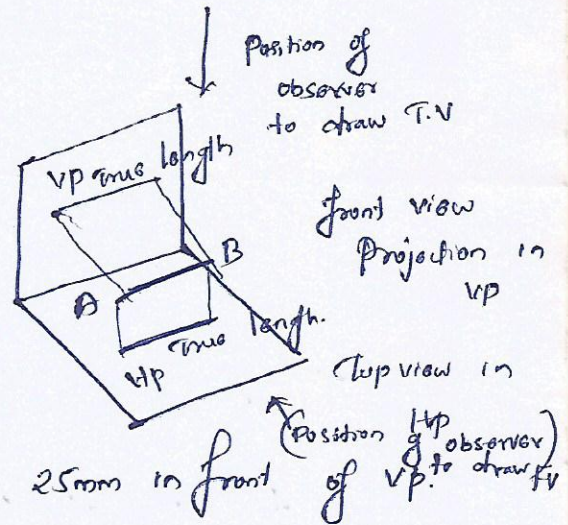 Position of
observer
to draw T.V
VP True length
front view
Projection in
VP
B
A
True length.
HP
Top view in
HP
(Position of observer)
to draw FV
25mm in front of VP.